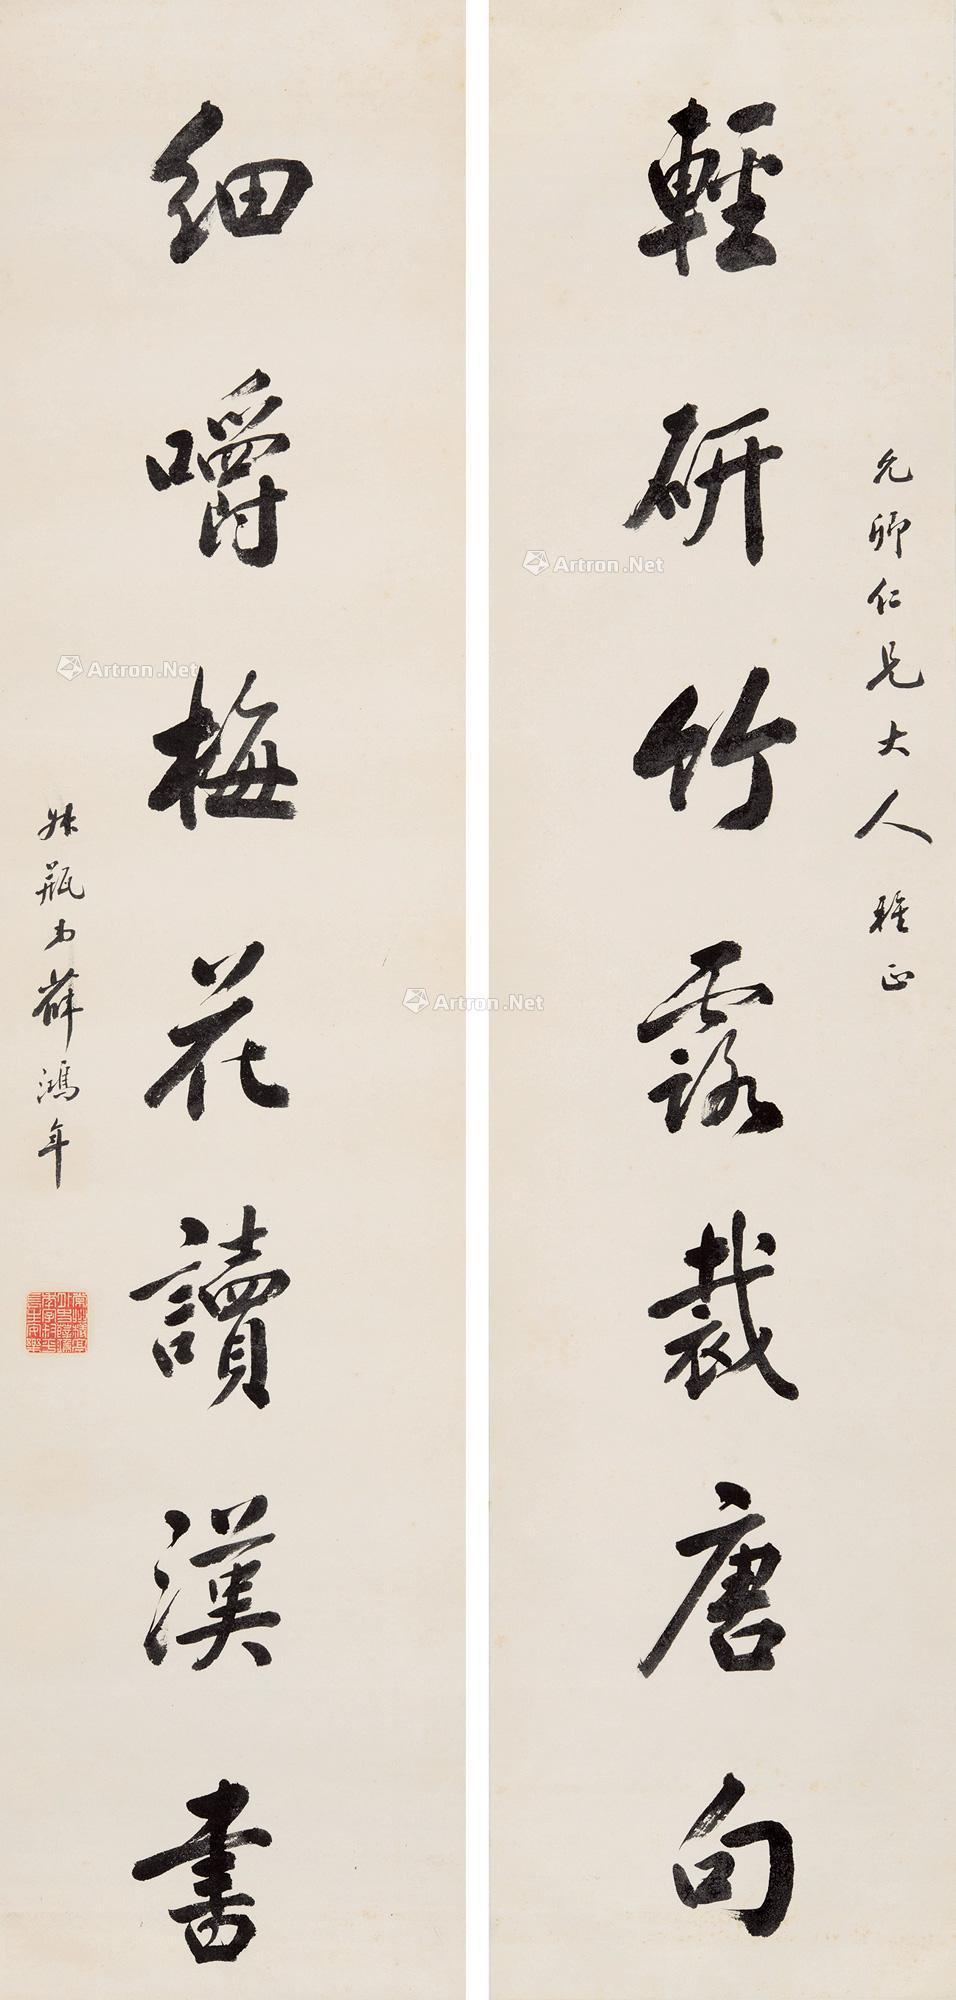 允卿仁兄大人 雅正
輕研竹露裁唐句
細嚼梅花讀漢書
薛鴻年
Artron.Net
Artron.Net
Artron.Net